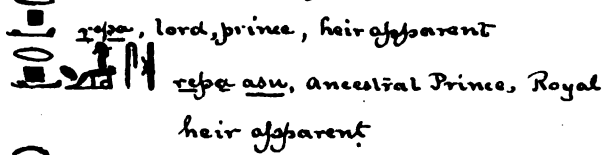 repa, lord, prince, heir apparent
repa asu, Ancestral Prince, Royal
heir apparent